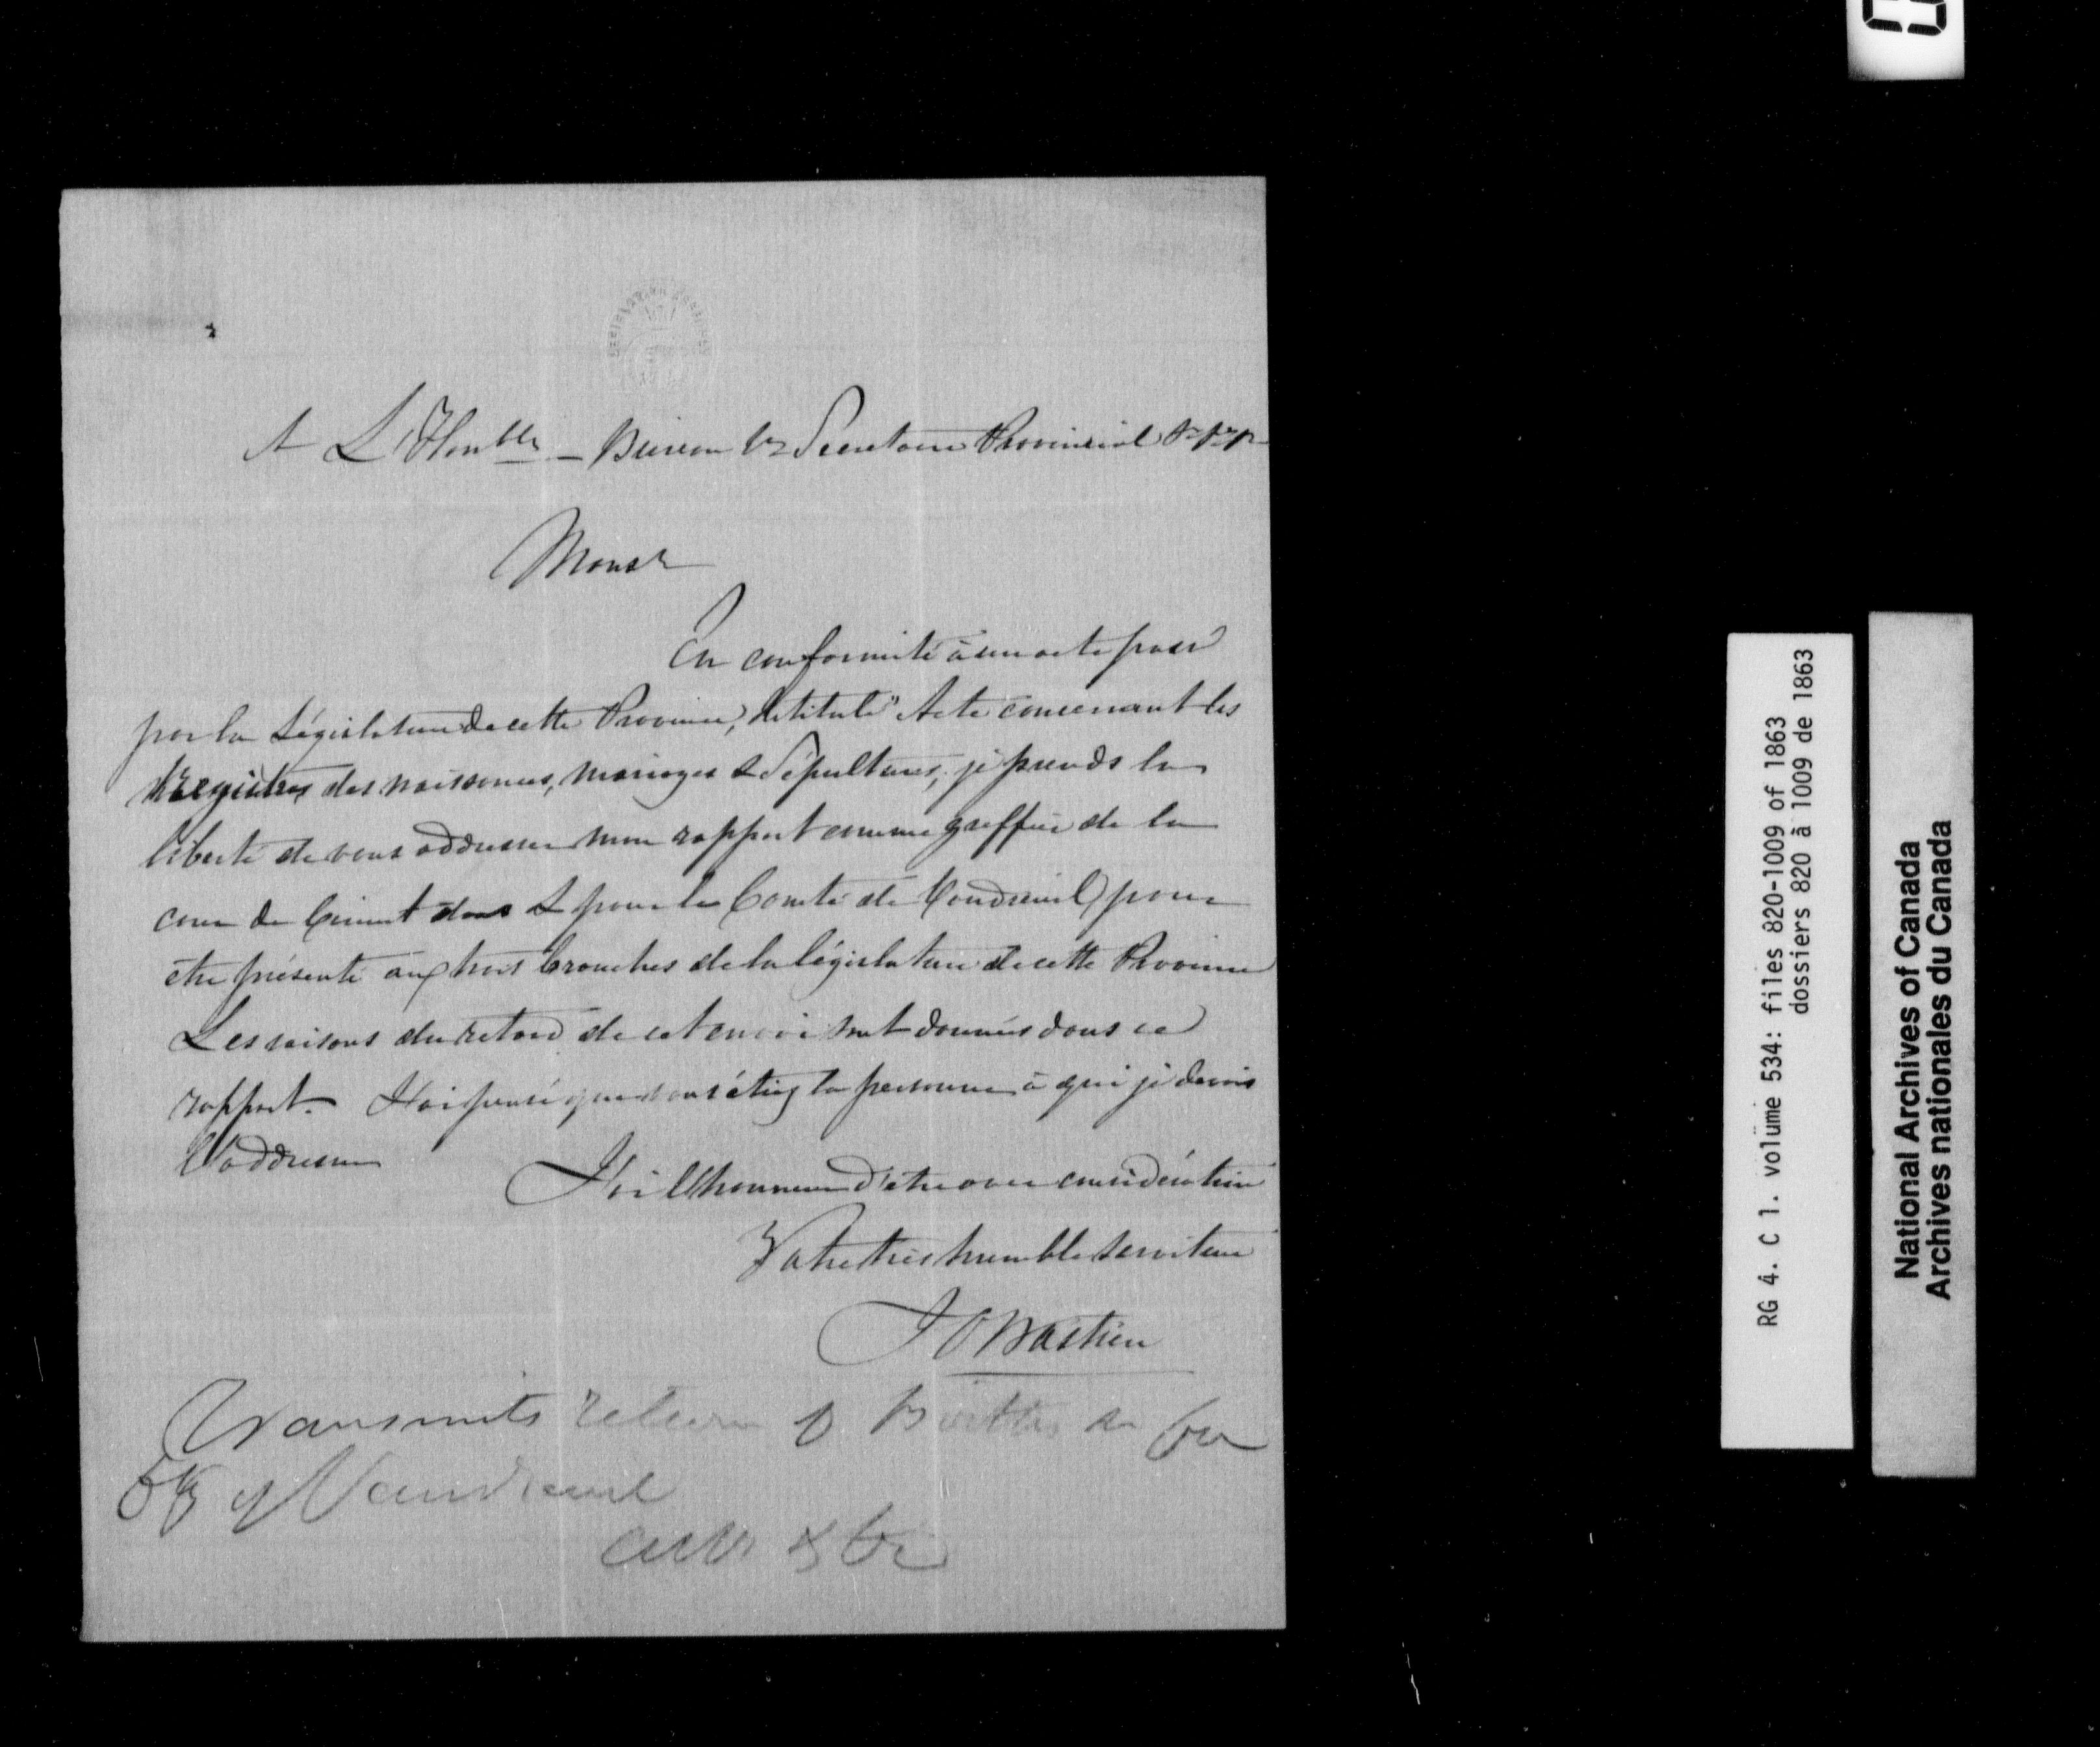 A L'Honble - Bureau du Secretaire Provincial
Monsr
En conformité à un acte passé
par la Législature de cette Province, Intitulé "Acte concernant les
Régistres des naissances, mariages & Sépultures, je prends la
liberté de vous addresser mon rapport comme greffier de la
cour de Circuit dans & pour le Comté de Vaudreuil, pour
etre présenté aux trois branches de la législature de cette Province
Les raisons du retard de cet envoi sont données dans ce
rapport. J'ai pensé que vous étiez la personne à qui je devais
l'addresser
J'ai l'honneur d'etre avec considération
Votre très humble serviteur
J O Bastien
Transmits return of Births &c for
Co of Vaudreuil
RG 4. C 1. volume 534: files 820-1009 of 1863
dossiers 820 à 1009 de 1863
National Archives of Canada
Archives nationales du Canada